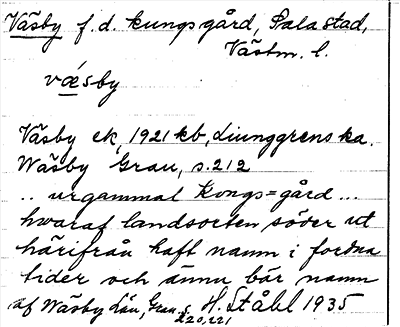 Väsby f.d. kungsgård, Sala stad,
Västm. l.
væ̀sby
Väsby ek, 1921 kb, Liunggrens ka.
Wäsby Grau, s. 212
.. urgammal Kongs=gård ...
hwaraf landsorten söder ut
härifrån haft namn i fordna
tider och ännu bär namn
af Wäsby Län, Grau s. 220, 221 H. Ståhl 1935